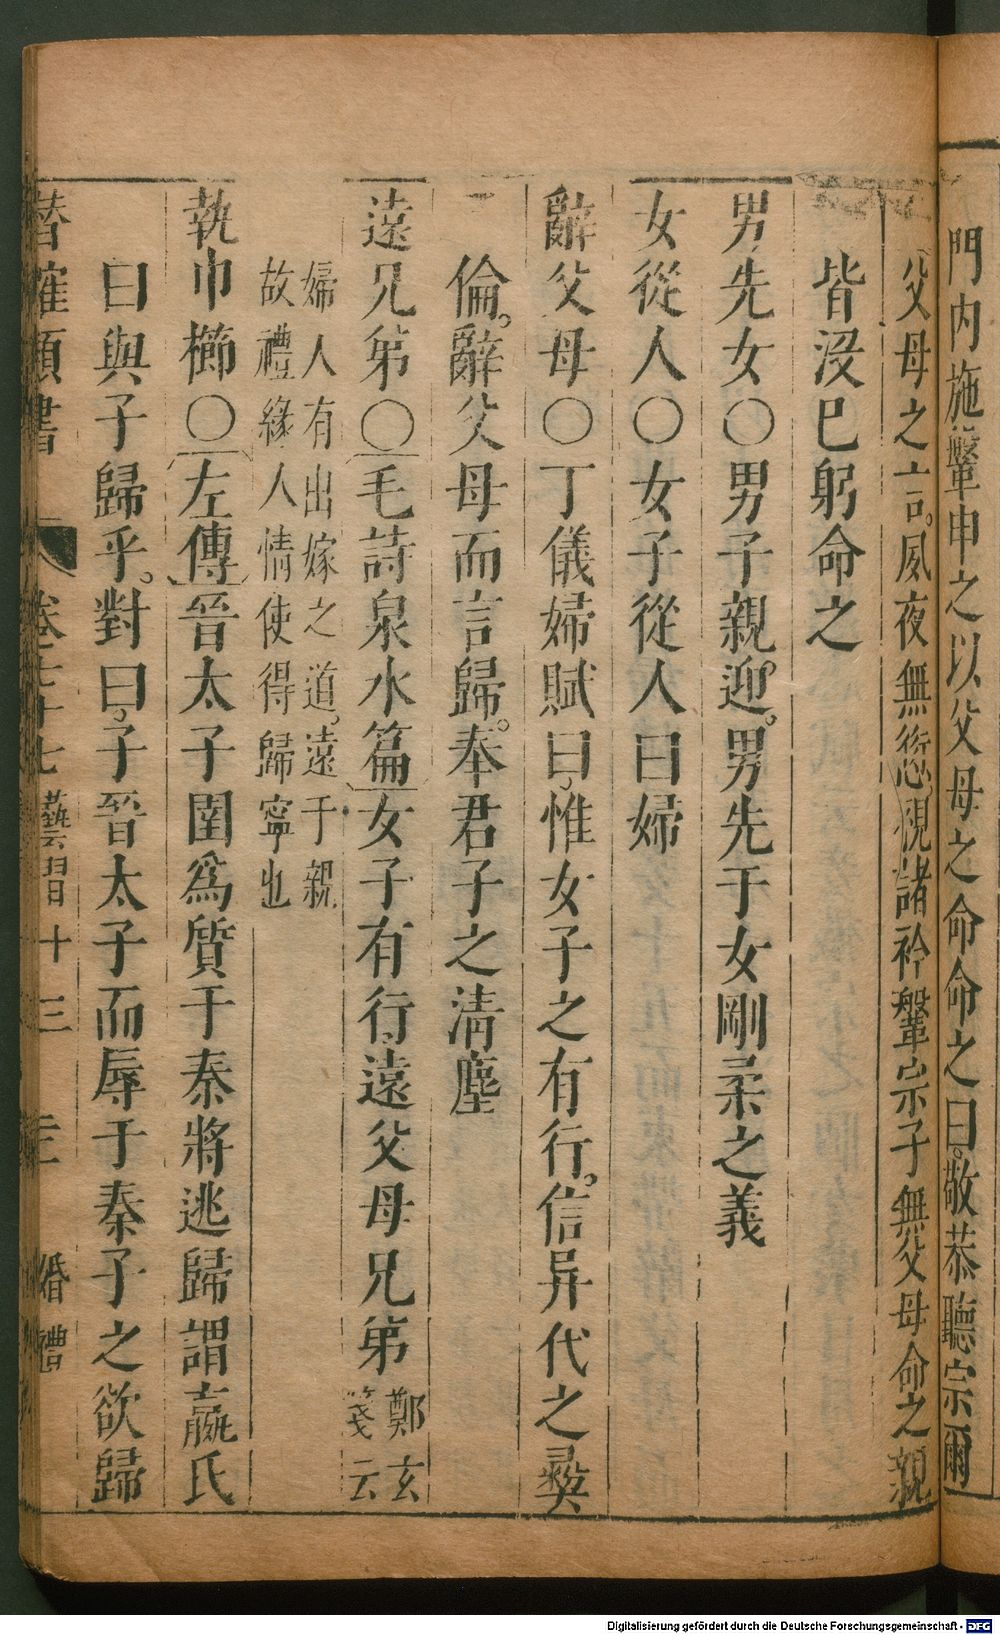 門内施鞶申之以父母之命命之曰敬恭聽宗爾
父母之言。夙夜無愆。視諸衿鞶宗子無父母命之親
皆沒已躬命之
男先女〇男子親迎。男先于女剛柔之義
女從人〇女子從人曰婦
辭父母〇丁儀婦賦曰。惟女子之有行。信异代之彝
倫。辭父母而言歸。奉君子之清塵
遠兄弟〇毛詩泉水篇女子有行遠父母兄弟鄭玄
箋云
婦人有出嫁之道。遠于親
故禮緣人情使得歸寧也
執巾櫛〇左傳晉太子圉爲質于秦將逃歸謂嬴氏
曰與子歸乎。對曰。子晉太子而辱于秦子之欲歸
類書 卷 十七 藝習十三 婚禮
Digitalisierung gefördert durch die Deutsche Forschungsgemeinschaft - DFG